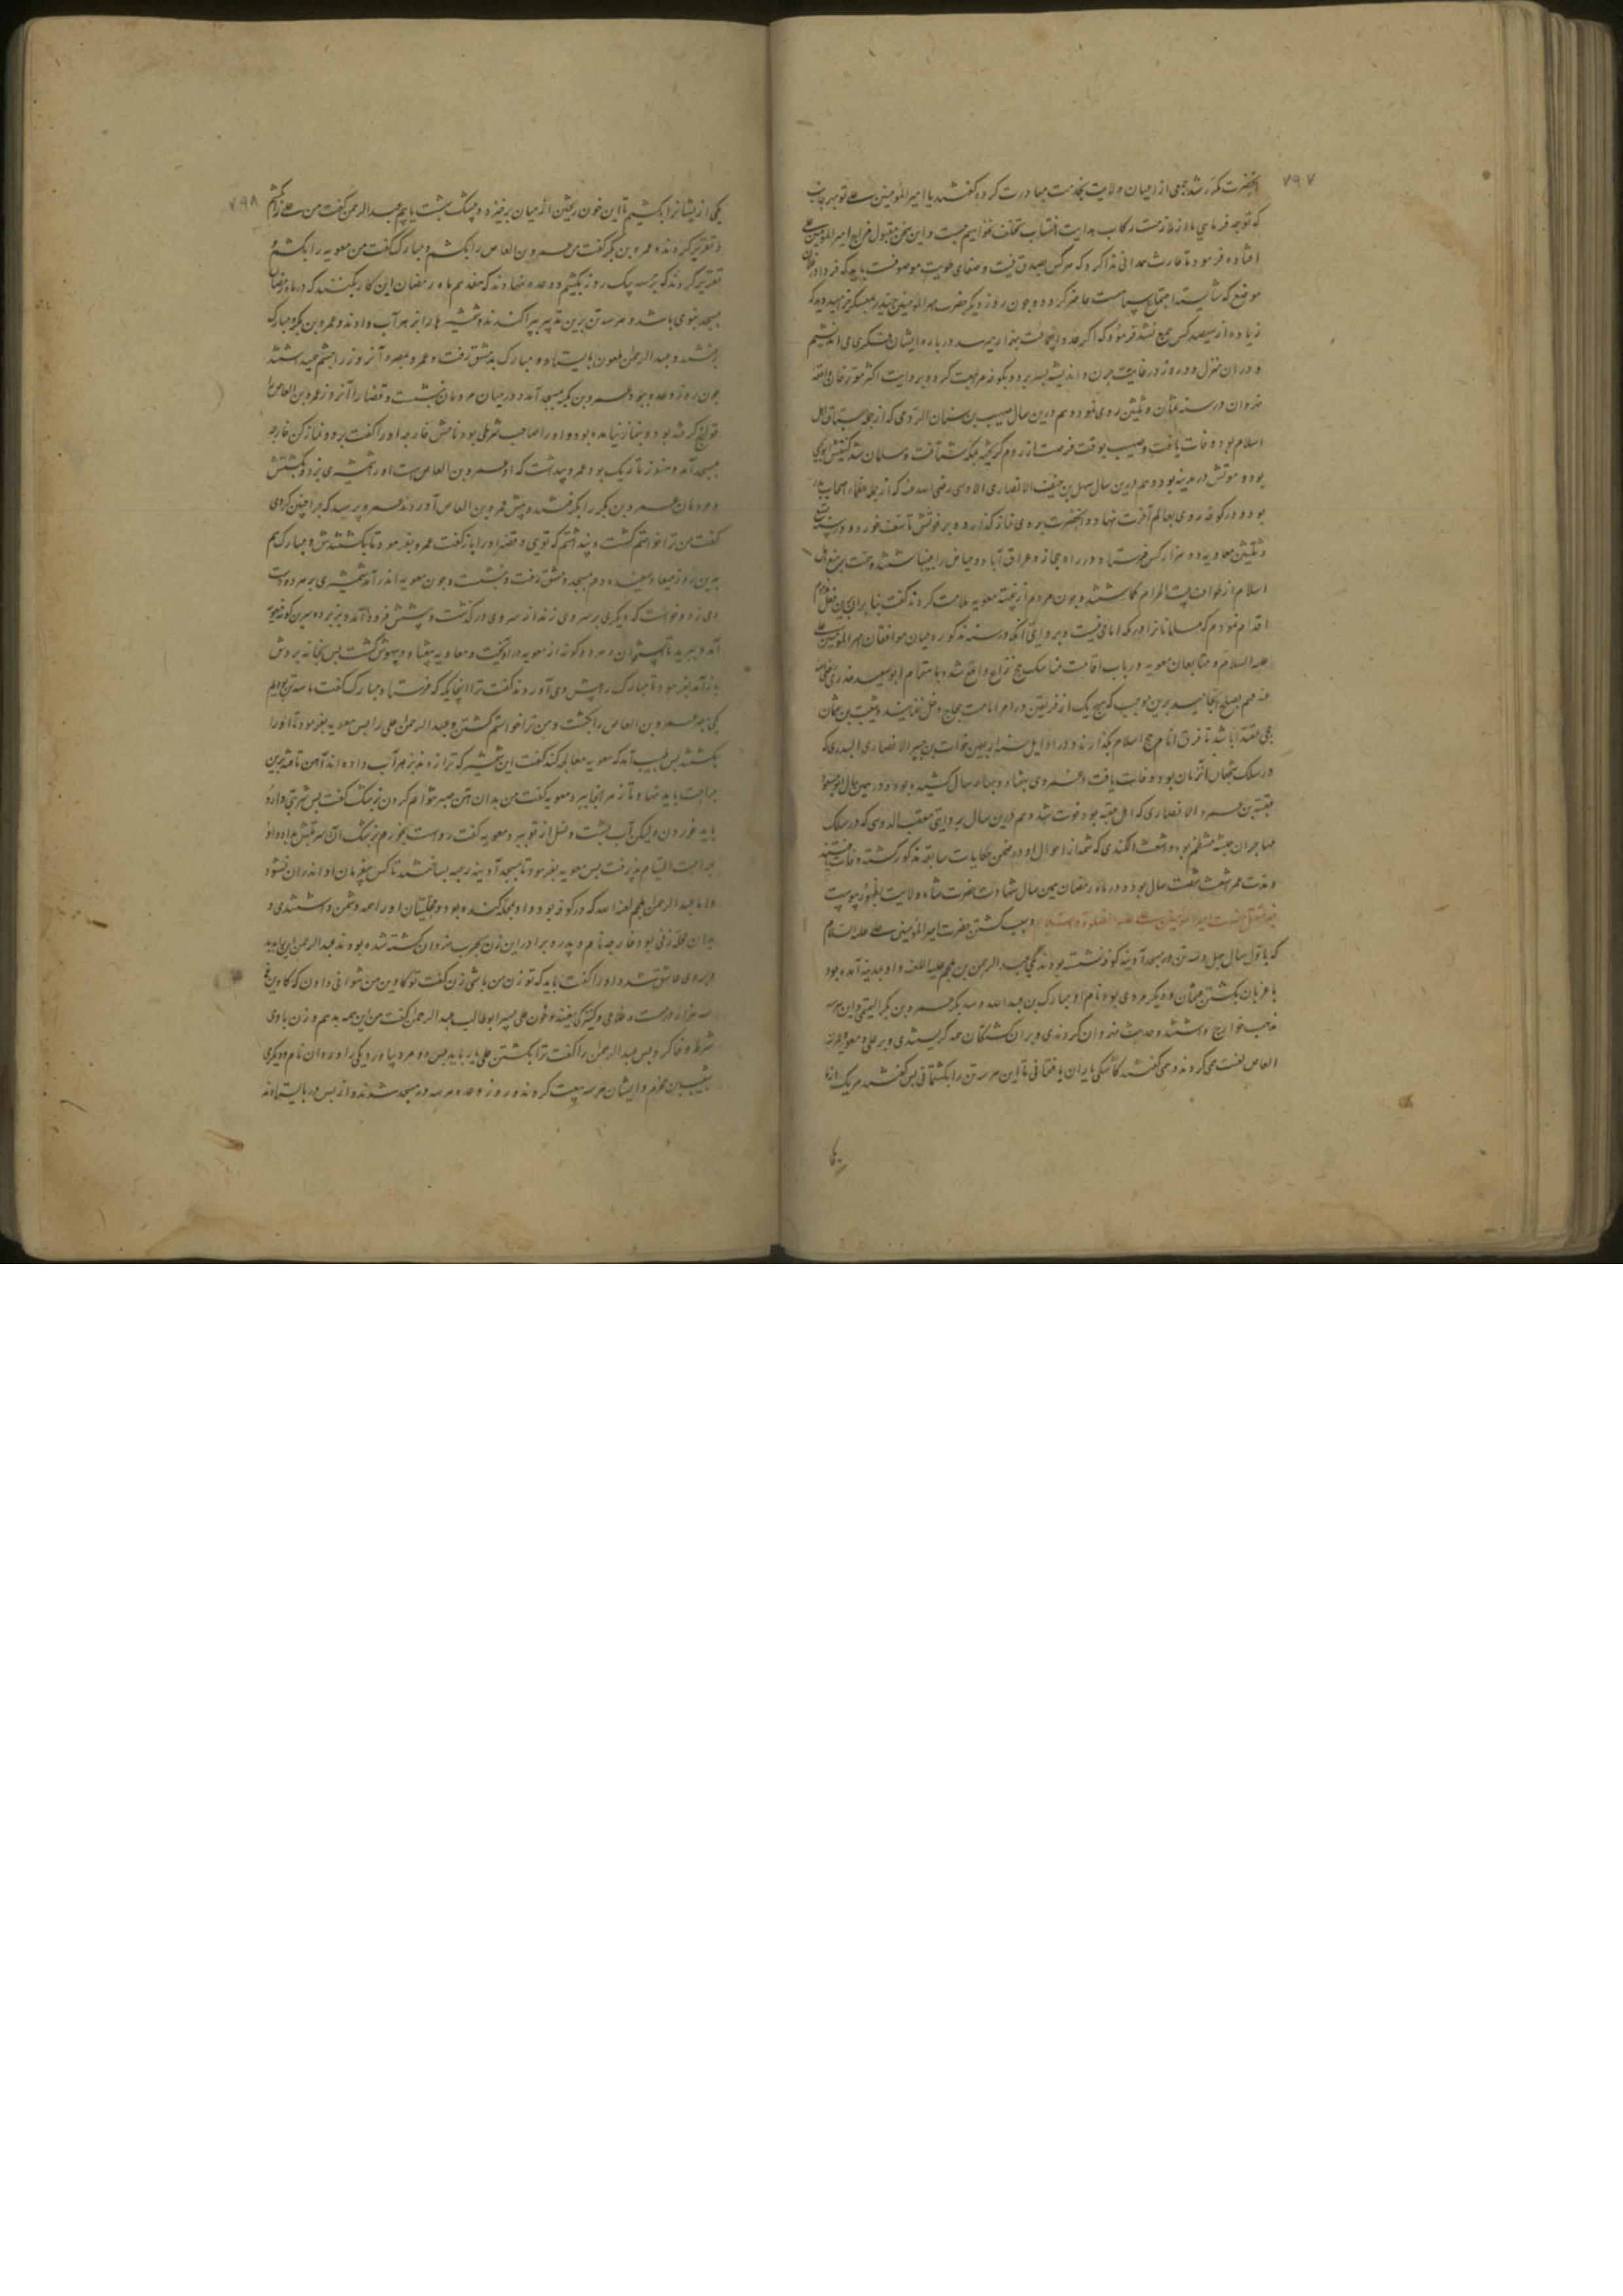 ٧٩٧
آنحضرت مکرر شد جمعی از اعیان ولایت بخدمت مبادرت کرده گفتند یا امیرالمؤمنین علی توبهر جانب
که توجه فرمایی ما از ملازمت رکاب هدایت انتساب تخلف نخواهیم جست و این سخن مقبول مزاج امیرالمؤمنین علی
افتاده فرمود تا حارث همدانی ندا کرد که هرکس بصدق نیت و صفای طویت موصوفست باید که فردا در فلان
موضع که شایسته اجتماع سپاهست حاضر گردد و چون روز دیگر حضرت امیرالمؤمنین حیدر بمعسکر خرامید دید که
زیاده از سیصد کس جمع نشد فرمود که اگر عدد این جماعت بهزار میرسد درباره ایشان فکری می اندیشیم
و در آن منزل دو روز در غایت حزن و اندیشه بسر برد و بکوفه مراجعت کرد و بروایت اکثر مورخان واقعه
نهروان در سنه ثمان و ثلثین روی نمود و هم درین سال صهیب بن سنان الرومی که از جمله سباق اهل
اسلام بود وفات یافت و صهیب بوقت فرصت از روم گریخته بمکه شتافت و مسلمان شد کنیتش ابویحیی
بود و موتش در مدینه بود و هم درین سال سهل بن حنیف الانصاری الاوسی رضی الله عنه که از جمله عظماء اصحاب بدر
بود در کوفه روی بعالم آخرت نهاد و آنحضرت بر وی نماز گذارده بر فوتش تأسف خورد و در سنه تسع
و ثلثین معاویه دو هزار کس فرستاد و در راه حجاز و عراق آباد و حیاض را بینباشتند و همت بر منع اهل
اسلام از طواف بیت الحرام گماشتند و چون مردم ازینجهت معویه ملامت کردند گفت بنابراین برین فعل
اقدام نمودم که مسلمانانرا در مکه امامی نیست و بروایتی آنکه در سنه مذکور میان موافقان امیرالمؤمنین علی
علیه السلام و متابعان معویه در باب اقامت مناسک حج نزاع واقع شده باهتمام ابوسعید خدری رضی الله
عنه مهم بصلح انجامید برین موجب که هیچ یک از فریقین در امر امامت حجاج دخل ننمایند و شیبه بن عثمان
حجبی مقتدا باشد تا فرق انام حج اسلام بگذارند و در اوایل سنه اربعین خوات بن جبیر الانصاری البدری که
در سلک شجعان آنزمان بود وفات یافت و عمر وی بهفتاد و چهار سال کشیده بود و در همین سال ابومسعود
عقبه بن عمرو الانصاری که اهل عقبه بود فوت شد و هم درین سال بروایتی معیقیب الدوسی که در سلک
مهاجران حبشه منتظم بود و اشعث الکندی که شمه از احوال او در ضمن حکایات سابقه مذکور گشته وفات یافتند
و مدت عمر اشعث شصت سال بود و در ماه رمضان همین سال شهادت حضرت شاه ولایت بظهور پیوست
امیرالمؤمنین علی علیه الصلوة والسلام و سبب کشتن حضرت امیرالمؤمنین علی علیه السلام
که باول سال چهل و سه تن در مسجد آدینه کوفه نشسته بودند یکی عبدالرحمن بن ملجم علیه اللعنه و او بمدینه آمده بود
با غزیان بکشتن عثمان و دیگر مردی بود نام او مبارک بن عبدالله و سدیگر عمرو بن بکر التیمی و این هر سه
مذهب خوارج داشتند و حدیث نهروان کردندی و بر آن کشتگان همه گریستندی و بر علی و معویه و عمرو
العاص لعنت همی کردند و همی گفتند کاشکی یاران یافتمانی تا این هر سه تن را بکشتمانی پس گفتند هر یک از ما
یکی
٧٩٨
یکی ازیشانرا بکشیم تا این خون ریختن از میان برخیزد و بیشک بهشت یابیم عبدالرحمن گفت من علی را بکشم
و تقریر کردند و عمرو بن بکر گفت من عمرو بن العاص را بکشم و مبارک گفت من معویه را بکشم
تقریر کردند که هرسه بیک روز بکشیم و وعده نهادند که هفدهم ماه رمضان این کار بکنند که در ماه رمضان
بمسجد بنوی باشد و هر سه تن برین تدبیر بپراکندند و شمشیرها را بزهر آب دادند و عمرو بن بکر و مبارک
برفتند و عبدالرحمن ملعون بایستاد و مبارک بدمشق رفت و عمرو بمصر و آنروز را چشم میداشتند
چون روز وعده بود عمرو بن بکر بمسجد آمد و در میان مردمان بنشست و قضا را آنروز عمرو بن العاص را
قولنج گرفته بود و بنماز نیامده بود و او را صاحب شرطی بود نامش خارجه او را گفت برو و نماز کن خارجه
بمسجد آمد و هنوز تاریک بود عمرو پنداشت که او عمرو بن العاص است او را شمشیری بزد و بکشتش
و مردمان عمرو بن بکر را بگرفتند و پیش عمرو بن العاص آوردند عمرو پرسید که چرا چنین کردی
گفت من ترا خواستم کشت و پنداشتم که تویی و قصه او را باز گفت عمرو بفرمود تا بکشتندش و مبارک هم
بدین روز میعاد معینه در مسجد دمشق رفت و بنشست و چون معویه اندر آمد شمشیری بر هر دو دست
وی زد و خواست که دیگری بر سر وی زند از سر وی درگذشت و پشتش فرود آمد و بزیر دو سرین گوشت معویه
آمد و ببرید تا استخوان و مردم کوفه از معویه درآویخت و معاویه بیفتاد و بیهوش گشت پس بخانه بردش
باز آمد بفرمود تا مبارک را پیش وی آوردند گفت ترا اینجا که فرستاد مبارک گفت ما سه تن بودیم
یکی عمرو بن العاص را بکشت و من ترا خواستم کشتن و عبدالرحمن علی را پس معویه بفرمود تا او را
بکشتند پس طبیب آمد که معویه معالجه کند گفت این شمشیر که ترا زده بزهر آب داده اند آهن تافته برین
جراحت باید نهاد تا زهر انجا ببرد معویه گفت من بدان آهن صبر نتوانم کردن پزشک گفت پس شربتی دارو
باید خوردن ولیکن آب پشت و نسل از تو ببرد معویه گفت رواست بخورم پزشک آن شربتش بداد و او
جراحت التیام پذیرفت پس معویه بفرمود تا مسجد آدینه رجبه بساختند تا کس بیفرمان او اندران نشود
و اما عبدالرحمن ملجم لعنه الله که در کوفه بود و او بمحله کنده بود و محلتیان او را همه دشمن داشتندی و
بدان محله زنی بود خارجه نام و پدر و برادر این زن بحرب نهروان کشته شده بودند عبدالرحمن او را بدید
و بر وی عاشق شد و او را گفت باید که تو زن من باشی زن گفت تو کاوین من نتوانی دادن که کاوین
سه هزار درمست و غلامی و کنیزکی مغنیه و خون علی پسر ابوطالب عبدالرحمن گفت من این همه بدهم و زن با وی
شرط وفا کرد پس عبدالرحمن را گفت ترا بکشتن علی یار باید پس دو مرد بیاورد یکی را وردان نام و دیگری
شبیب بن و ایشان هر سه بیعت کردند و روز وعده هر سه در مسجد شدند و از پس در بایستادند